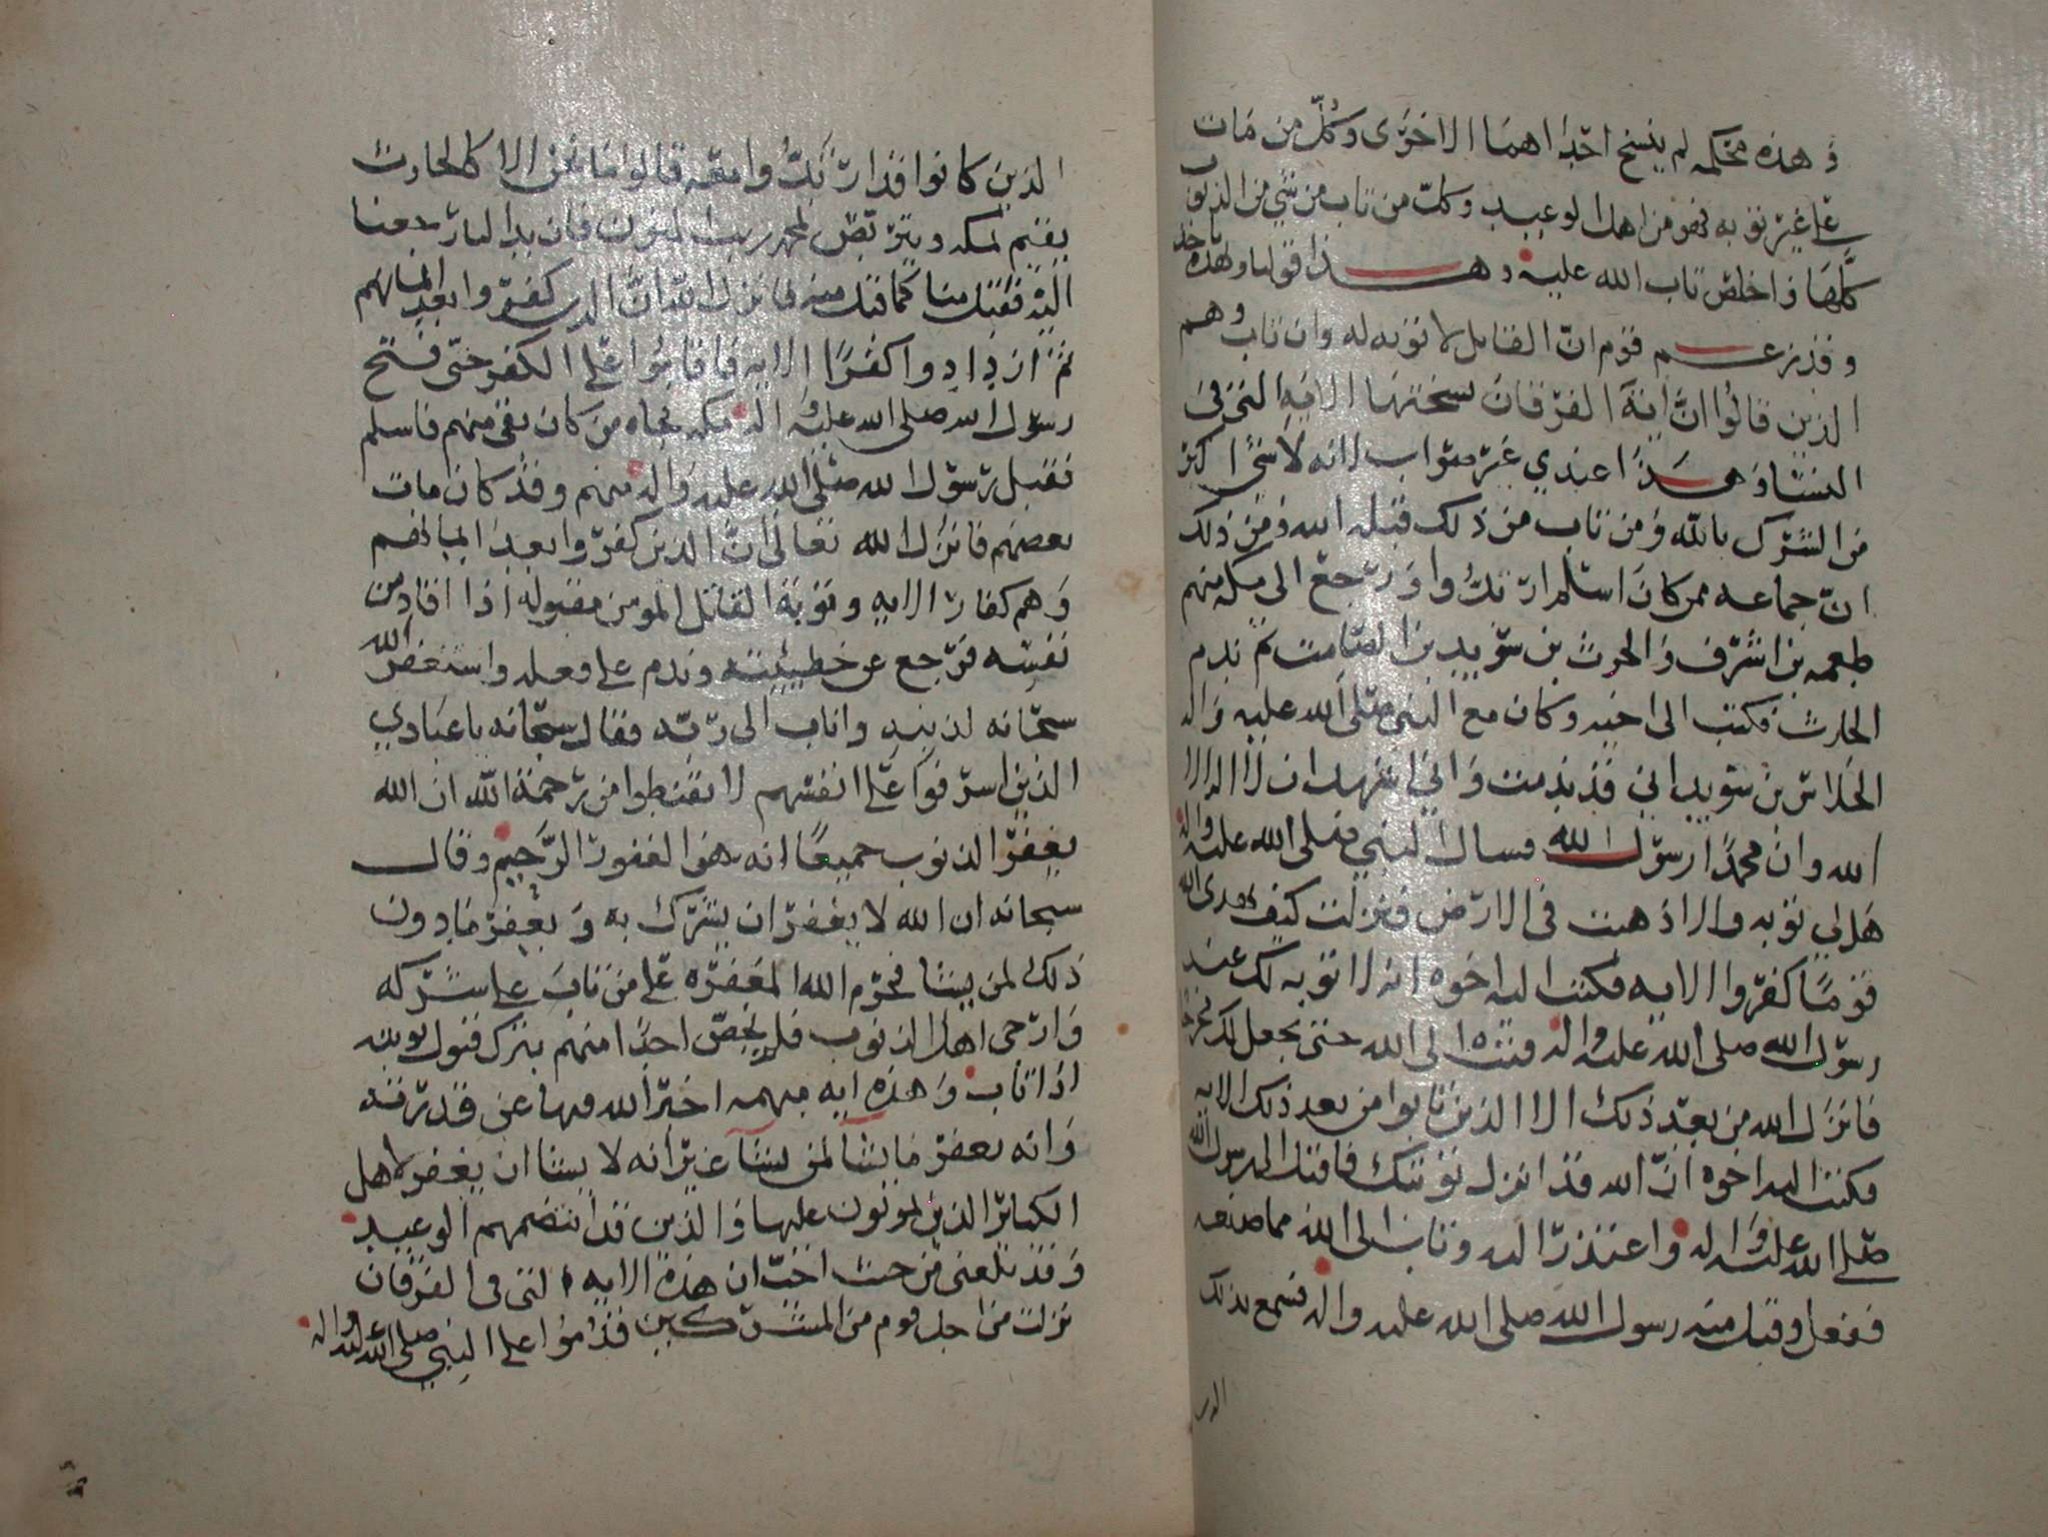 وهذه محكمه لم ينسخ احدا هما الاخرى وكل من مات
على غير توبه فهو من اهل الوعيد وكل من تاب من شي من الذنوب
كلها واخلص تاب الله عليه وهذا قولنا وبهذه ناخذ
وقد زعم قوم ان القاتل لا توبه له وان تاب وهم
الذين قالوا ان اية الفرقان نسختها الايه التي في
النسا وهذا عندي غير صواب لانه لا شي اكبر
من الشرك بالله ومن تاب من ذلك قبله الله ومن ذلك
ان جماعه ممن كان اسلم ارتدوا ورجع الى مكه منهم
طعمه بن اشرف والحرث بن سويد بن الصامت ثم ندم
الحارث فكتب الى اخيه وكان مع النبي صلى الله عليه واله
الجلاس بن سويد اني قد ندمت واني اشهد ان لا اله الا
الله وان محمدا رسول الله فسال النبي صلى الله عليه واله
هل لي توبه والا ذهبت في الارض فنزلت كيف يهدى الله
قوما كفروا الايه فكتب اليه اخوه انه لا توبه لك عند
رسول الله صلى الله عليه واله فتب الى الله حتى يجعل لك مخرجا
فانزل الله من بعد ذلك الا الذين تابوا من بعد ذلك الايه
فكتب اليه اخوه ان الله قد انزل توبتك فاقبل الى رسول الله
صلى الله عليه واله واعتذر اليه وتاب الى الله مما صنعه
ففعل وقبل منه رسول الله صلى الله عليه واله فسمع بذلك
الذين
الذين كانوا قد ارتدوا معه قالوا ما نحن الا كالحارث
يقيم بمكه ويتربص بمحمد ريب المنون فان بدا لنا رجعنا
اليه فقبل منا كما قبل منه فانزل الله ان الذين كفروا بعد ايمانهم
ثم ازدادوا كفرا الايه فاقاموا على الكفر حتى فتح
رسول الله صلى الله عليه واله مكه فجاه من كان بقى منهم فاسلم
فقبل رسول الله صلى الله عليه واله منهم وقد كان مات
بعضهم فانزل الله تعالى ان الذين كفروا بعد ايمانهم
وهم كفار الايه وتوبة القاتل المومن مقبوله اذا اقاد من
نفسه فرجع عن خطيئته وندم على فعله واستغفر الله
سبحانه لذنبه واناب الى ربه فقال سبحانه يا عبادي
الذين اسرفوا على انفسهم لا تقنطوا من رحمة الله ان الله
يغفر الذنوب جميعا انه هو الغفور الرحيم وقال
سبحانه ان الله لا يغفر ان يشرك به ويغفر ما دون
ذلك لمن يشا فحرم الله المغفره على من تاب على شركه
وارجى اهل الذنوب فلم يخص احدا منهم بترك قبول توبته
اذا تاب وهذه ايه مبهمه اخبر الله فيها عن قدرته
وانه يغفر ما يشا لمن يشا غير انه لا يشا ان يغفر لاهل
الكبائر الذين يموتون عليها والذين قد انتضمهم الوعيد
وقد بلغنى من حيث احب ان هذه الايه التى فى الفرقان
نزلت من اجل قوم من المشركين قدموا على النبي صلى الله عليه واله